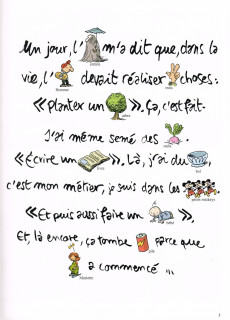 Un jour, l' m'a dit que, dans la
vie, l' devait réaliser choses :
Homme
« Planter un ». Ça, c'est fait.
arbre
J'ai même semé des
« Écrire un ». Là, j'ai du
livre
c'est mon métier, je suis dans les
petits mickeys
« Et puis aussi faire un »
bébé
Et, là encore, ça tombe parce que
a commencé ...